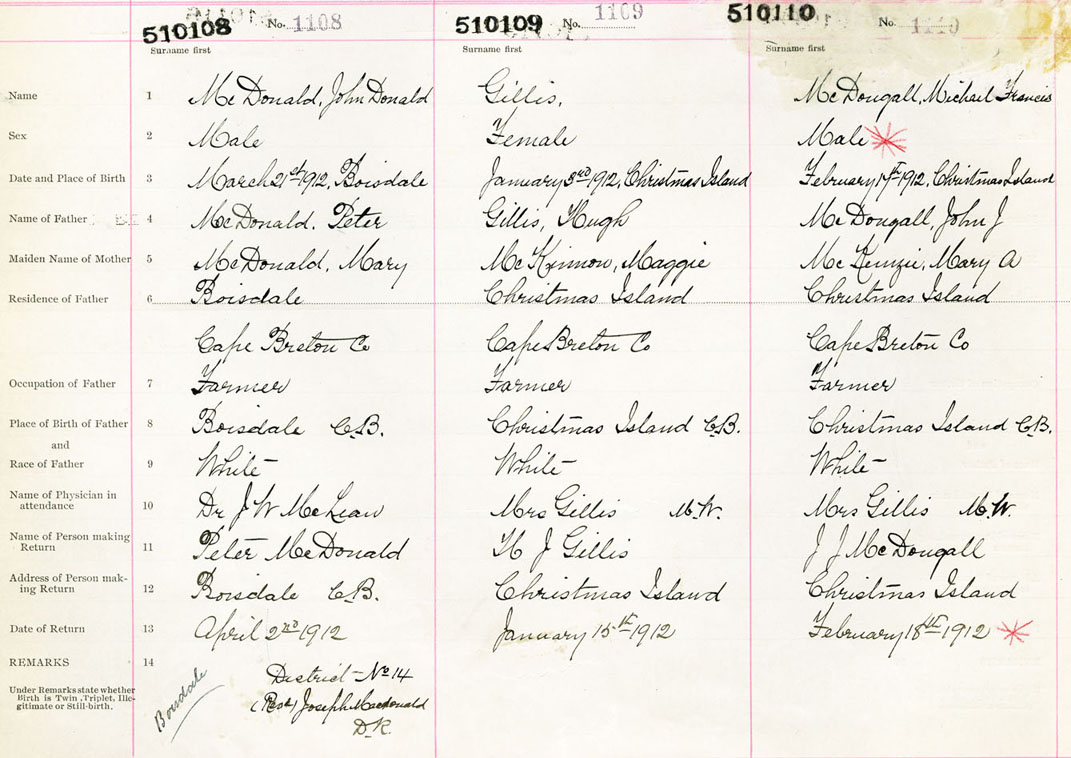 510108 No. 1108 510109 No. 1109 510110 No. 1110
Surname first Surname first Surname first
Name 1 McDonald, John Donald Gillis, McDougall, Michael Francis
Sex 2 Male Female Male
Date and Place of Birth 3 March 21st 1912, Boisdale January 3rd 1912, Christmas Island February 1912, Christmas Island
Name of Father 4 McDonald, Peter Gillis, Hugh McDougall, John J
Maiden Name of Mother 5 McDonald, Mary McKinnon, Maggie McKenzie, Mary A
Residence of Father 6 Boisdale Christmas Island Christmas Island
Cape Breton Co Cape Breton Co Cape Breton Co
Occupation of Father 7 Farmer Farmer Farmer
Place of Birth of Father 8 Boisdale C.B. Christmas Island C.B. Christmas Island C.B.
and
Race of Father 9 White White White
Name of Physician in
attendance 10 Dr J W McLean Mrs Gillis M.W. Mrs Gillis M.W.
Name of Person making
Return 11 Peter McDonald H J Gillis J J McDougall
Address of Person mak-
ing Return 12 Boisdale C.B. Christmas Island Christmas Island
Date of Return 13 April 2nd 1912 January 15th 1912 February 18th 1912
REMARKS 14
Under Remarks state whether
Birth is Twin, Triplet, Ille-
gitimate or Still-birth.
Boisdale
District No 14
(Rev) Joseph Macdonald
D.R.